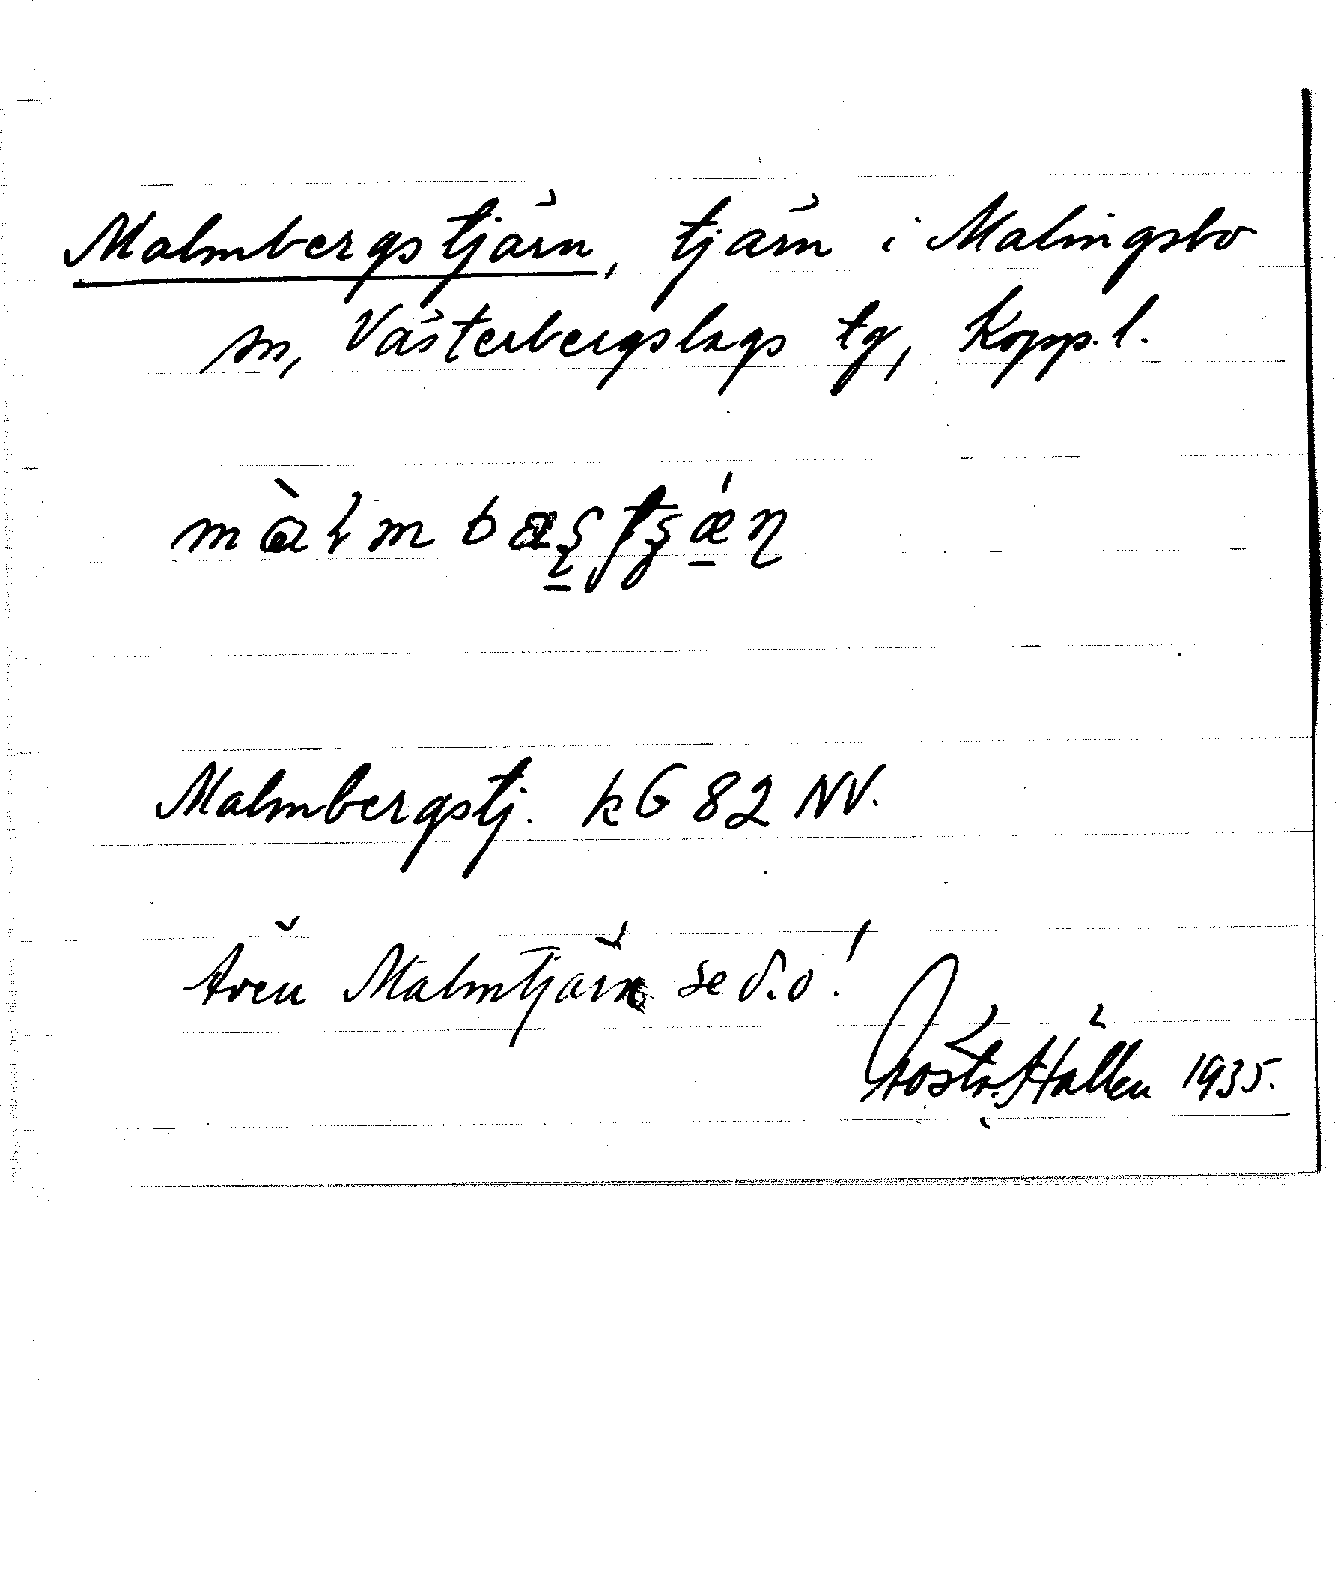 Malmbergstjärn, tjärn i Malingsbo
sn, Västerbergslags tg, Kopp. l.
màlmbæʂtʂǽɳ
Malmbergstj. kG 82 NV.
Även Malmtjärn se d. o!
Gösta Hallén 1935.